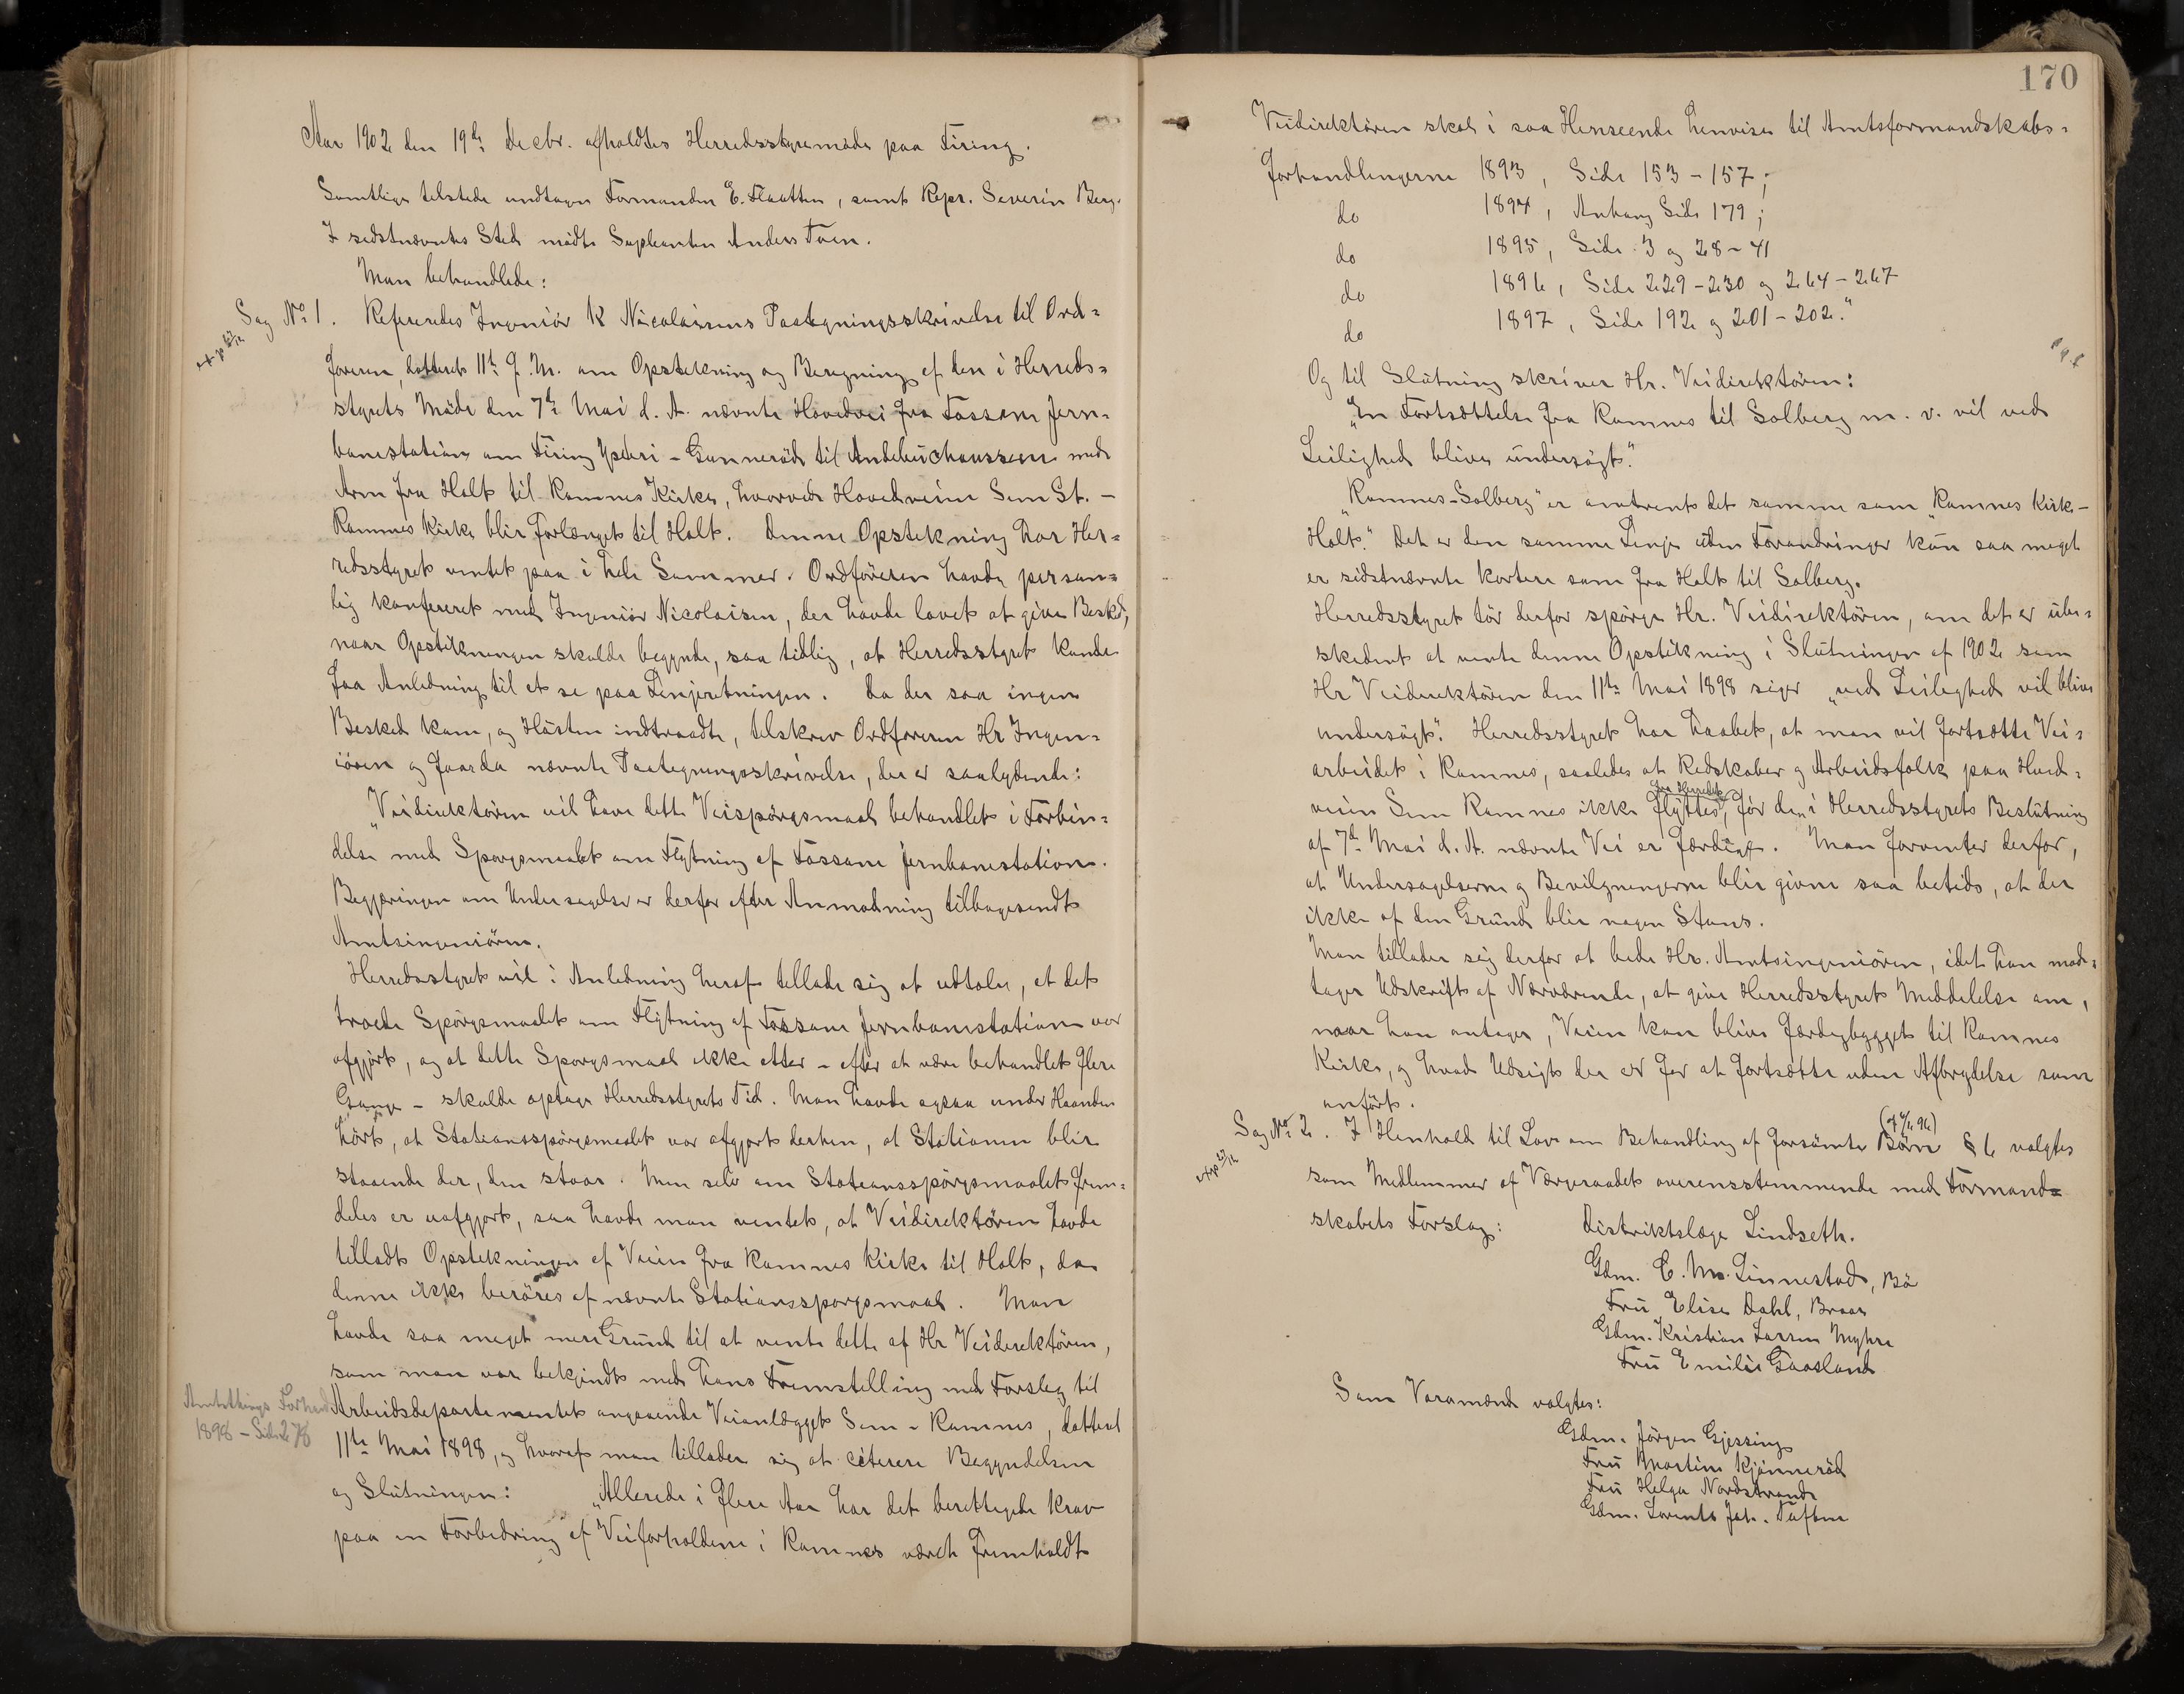 Aar 1902 den 19de Decbr. afholdtes Herredsstyremøde paa Firing.
Samtlige tilstede undtagen Formanden E. Flaatten, samt Repr. Severin Berg.
I sidstnævntes Sted mødte Supleanten Anders Toen.
Man behandlede:
Sag No 1. Refereredes Ingeniør K Nicolaisens Paategningsskrivelse til Ord=
exp 27/12
føreren, datteret 11te f. M. om Opstikning og Beregning af den i Herreds=
styrets Møde den 7de Mai d. A. nævnte Hovedvei fra Fossane Jern=
banestation om Firing Ysteri - Gunnerød til Andebuchausseen med
Arm fra Holt til Ramnes Kirke, hvorved Hovedveien Sem St. -
Ramnes Kirke blir forlænget til Holt. Denne Opstikning har Her=
redsstyret ventet paa i hele Sommer. Ordføreren havde person=
lig konfereret med Ingeniør Nicolaisen, der havde lovet at give Besked,
naar Opstikningen skulde begynde, saa tidlig, at Herredsstyret kunde
faa Anledning til at se paa Linjeretningen. Da der saa ingen
Besked kom, og Høsten indtraadte, tilskrev Ordføreren Hr Ingen=
iøren og faar da nævnte Paategningsskrivelse, der er saalydende:
"Veidirektøren vil have dette Veispørgsmaal behandlet i Forbin=
delse med Spørgsmaalet om Flytning af Fossane Jernbanestation.
Begjæringen om Undersøgelse er derfor efter Anmodning tilbagesendt
Amtsingeniøren.
Herredsstyret vil i Anledning heraf tillade sig at udtale, at det
troede Spørgsmaalet om Flytning af Fossane Jernbanestation var
afgjort, og at dette Spørgsmaal ikke atter - efter at være behandlet flere
Gange - skulde optage Herredsstyrets Tid. Man havde ogsaa under Haanden
hørt, at Stationsspørgsmaalet var afgjort derhen, at Stationen blir
staaende der, den staar. Men selv om Stationsspørgsmaalet frem=
deles er uafgjort, saa havde man ventet, at Veidirektøren havde
tilladt Opstikningen af Veien fra Ramnes Kirke til Holt, da
denne ikke berøres af nævnte Stationsspørgsmaal. Man
havde saa meget mere Grund til at vente dette af Hr Veidirektøren,
som man var bekjendt med hans Fremstilling med Forslag til
Amtstings Forhand
Arbeidsdepartementet angaaende Veianlægget Sem - Ramnes, datteret
1898 - Side 278
11te Mai 1898, og hvoraf man tillader sig at citere Begyndelsen
og Slutningen: "Allerede i flere Aar har det berettigede Krav
paa en Forbedring af Veiforholdene i Ramnes været fremholdt
170
Veidirektøren skal i saa Henseende henvise til Amtsformandskabs=
forhandlingerne 1893, Side 153 - 157;
do 1894, Anhang Side 179;
do 1895, Side 3 og 28 - 41
do 1896, Side 229 - 230 og 264 - 267
do 1897, Side 192 og 201 - 202."
Og til Slutning skriver Hr. Veidirektøren:
"En Fortsættelse fra Ramnes til Solberg m. v. vil ved
Leilighed blive undersøgt."
"Ramnes-Solberg" er omtrent det samme som "Ramnes Kirke -
Holt." Det er den samme Linje uden Forandringer kun saa meget
er sidstnævnte kortere som fra Holt til Solberg.
Herredsstyret tør derfor spørge Hr. Veidirektøren, om det er ube=
skedent at vente denne Opstikning i Slutningen af 1902 som
Hr Veidirektøren den 11te Mai 1898 siger "ved Leilighed vil blive
undersøgt". Herredsstyret har haabet, at man vil fortsætte Vei=
arbeidet i Ramnes, saaledes at Redskaber og Arbeidsfolk paa Hoved=
fra Herredet
veien Sem Ramnes ikke flyttes, før den i Herredsstyrets Beslutning
af 7de Mai d. A. nævnte Vei er færdig. Man forventer derfor,
at Undersøgelserne og Bevilgningerne blir givne saa betids, at der
ikke af den Grund blir nogen Stans.
Man tillader sig derfor at bede Hr. Amtsingeniøren, idet han mod=
tager Udskrift af Nærværende, at give Herredsstyret Meddelelse om,
naar han antager, Veien kan blive færdigbygget til Ramnes
Kirke, og hvad Udsigt der er for at fortsætte uden Afbrydelse som
anført.
Sag No 2. I Henhold til Lov om Behandling af forsømte Børn (af 6/6 96) § 6 valgtes
exp 27/12
som Medlemmer af Værgeraadet overensstemmende med Formand=
skabets Forslag: Distriktslæge Lindseth.
Gdm. C. M. Linnestad, Bø
Fru Elise Dahl, Braar
Gdm. Kristian Larsen Myhre
Fru Emilie Gaasland
Som Varamænd valgtes:
Gdm. Jørgen Gjessing
Fru Martine Kjønnerød
Fru Helga Nordstrand
Gdm. Lorents Joh. Tufone